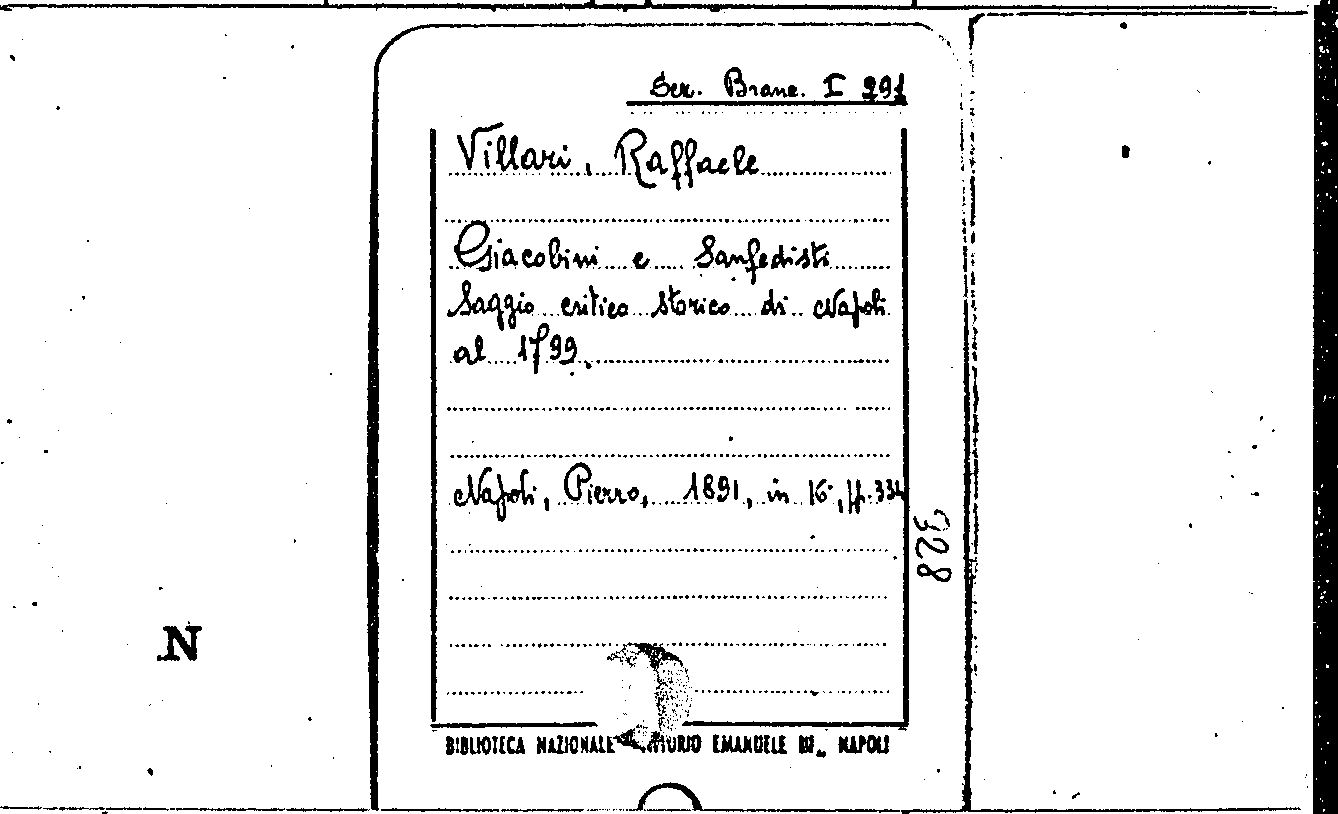 Ser. Branc. I 291
Villari, Raffaele
Giacobini e Sanfedisti
Saggio critico storico di Napoli
al 1799.
Napoli, Pierro, 1891, in 16°, pp. 334
328
N
BIBLIOTECA NAZIONALE EMANUELE III NAPOLI